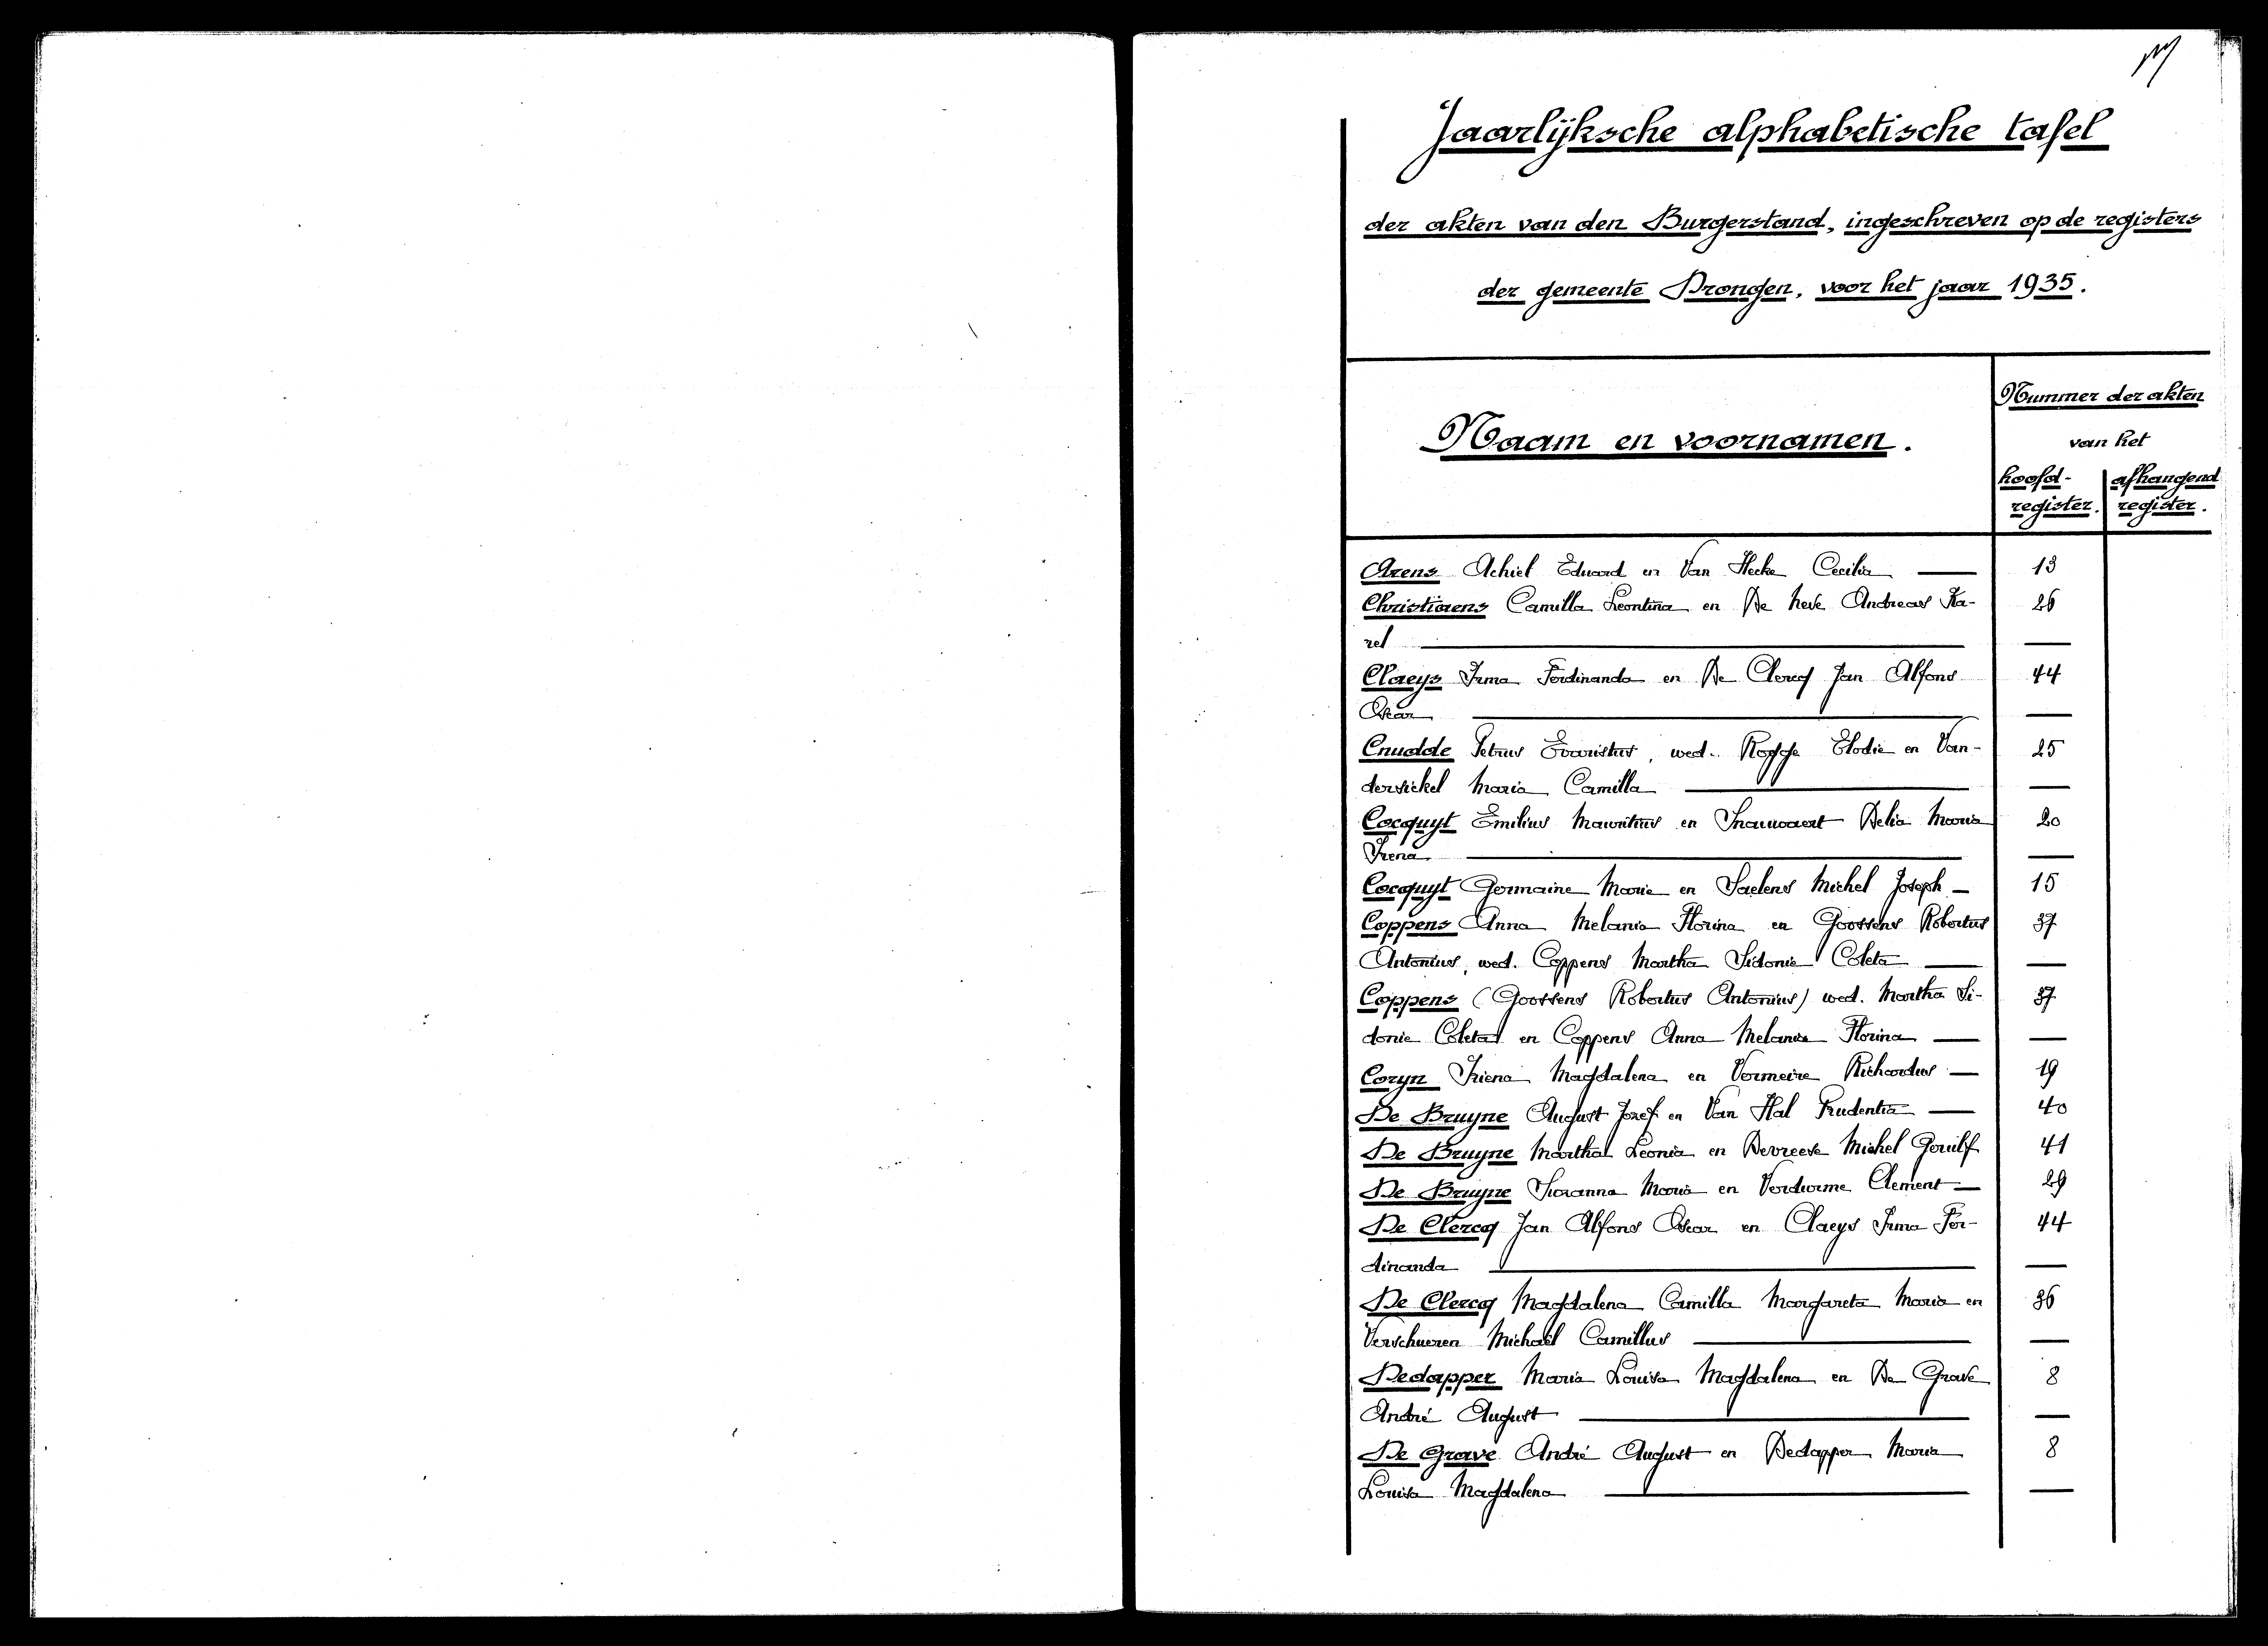 Jaarlijksche alphabetische tafel
der akten van den Burgerstand, ingeschreven op de registers
der gemeente Drongen, voor het jaar 1935.
Naam en voornamen.
Nummer der akten
van het
hoofd-register.
afhangend register.
Arens Achiel Eduard en Van Hecke Cecilia — 13
Christiaens Camilla Leontina en De Neve Andreas Ka- 26
rel —
Claeys Irma Ferdinanda en De Clercq Jan Alfons 44
Oscar —
Cnudde Petrus Evaristus, wed. Rogge Elodie en Van- 25
dersickel Maria Camilla —
Cocquyt Emilius Mauritius en Snauwaert Delia Maria 20
Irena —
Cocquyt Germaine Marie en Saelens Michel Joseph — 15
Coppens Anna Melania Florina en Goossens Robertus 37
Antonius, wed. Coppens Martha Sidonie Coleta —
Coppens (Goossens Robertus Antonius) wed. Martha Si- 37
donie Coleta en Coppens Anna Melania Florina —
Coryn Iriena Magdalena en Vermeire Richardus — 19
De Bruyne August Jozef en Van Hal Prudentia — 40
De Bruyne Martha Leonia en Devreese Michel Gerulf 41
De Bruyne Suzanna Maria en Verdurme Clement — 29
De Clercq Jan Alfons Oscar en Claeys Irma Fer- 44
dinanda —
De Clercq Magdalena Camilla Margareta Maria en 36
Verschueren Michaël Camillus —
Dedapper Maria Louisa Magdalena en De Grave 8
André August —
De Grave André August en Dedapper Maria 8
Louisa Magdalena —